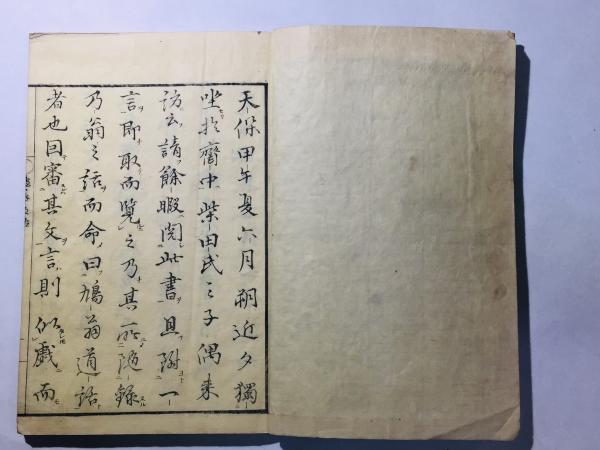 天保甲午夏六月朔近夕獨
坐於齋中柴田氏之子偶来
訪云請餘暇閲此書且附一
言即取而覧之乃其所随録
乃翁之話而命曰鳩翁道話
者也因審其文言則似戲而